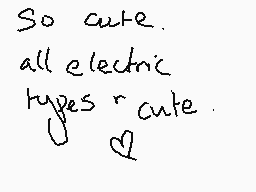 So cute.
all electric
types r cute.
♡